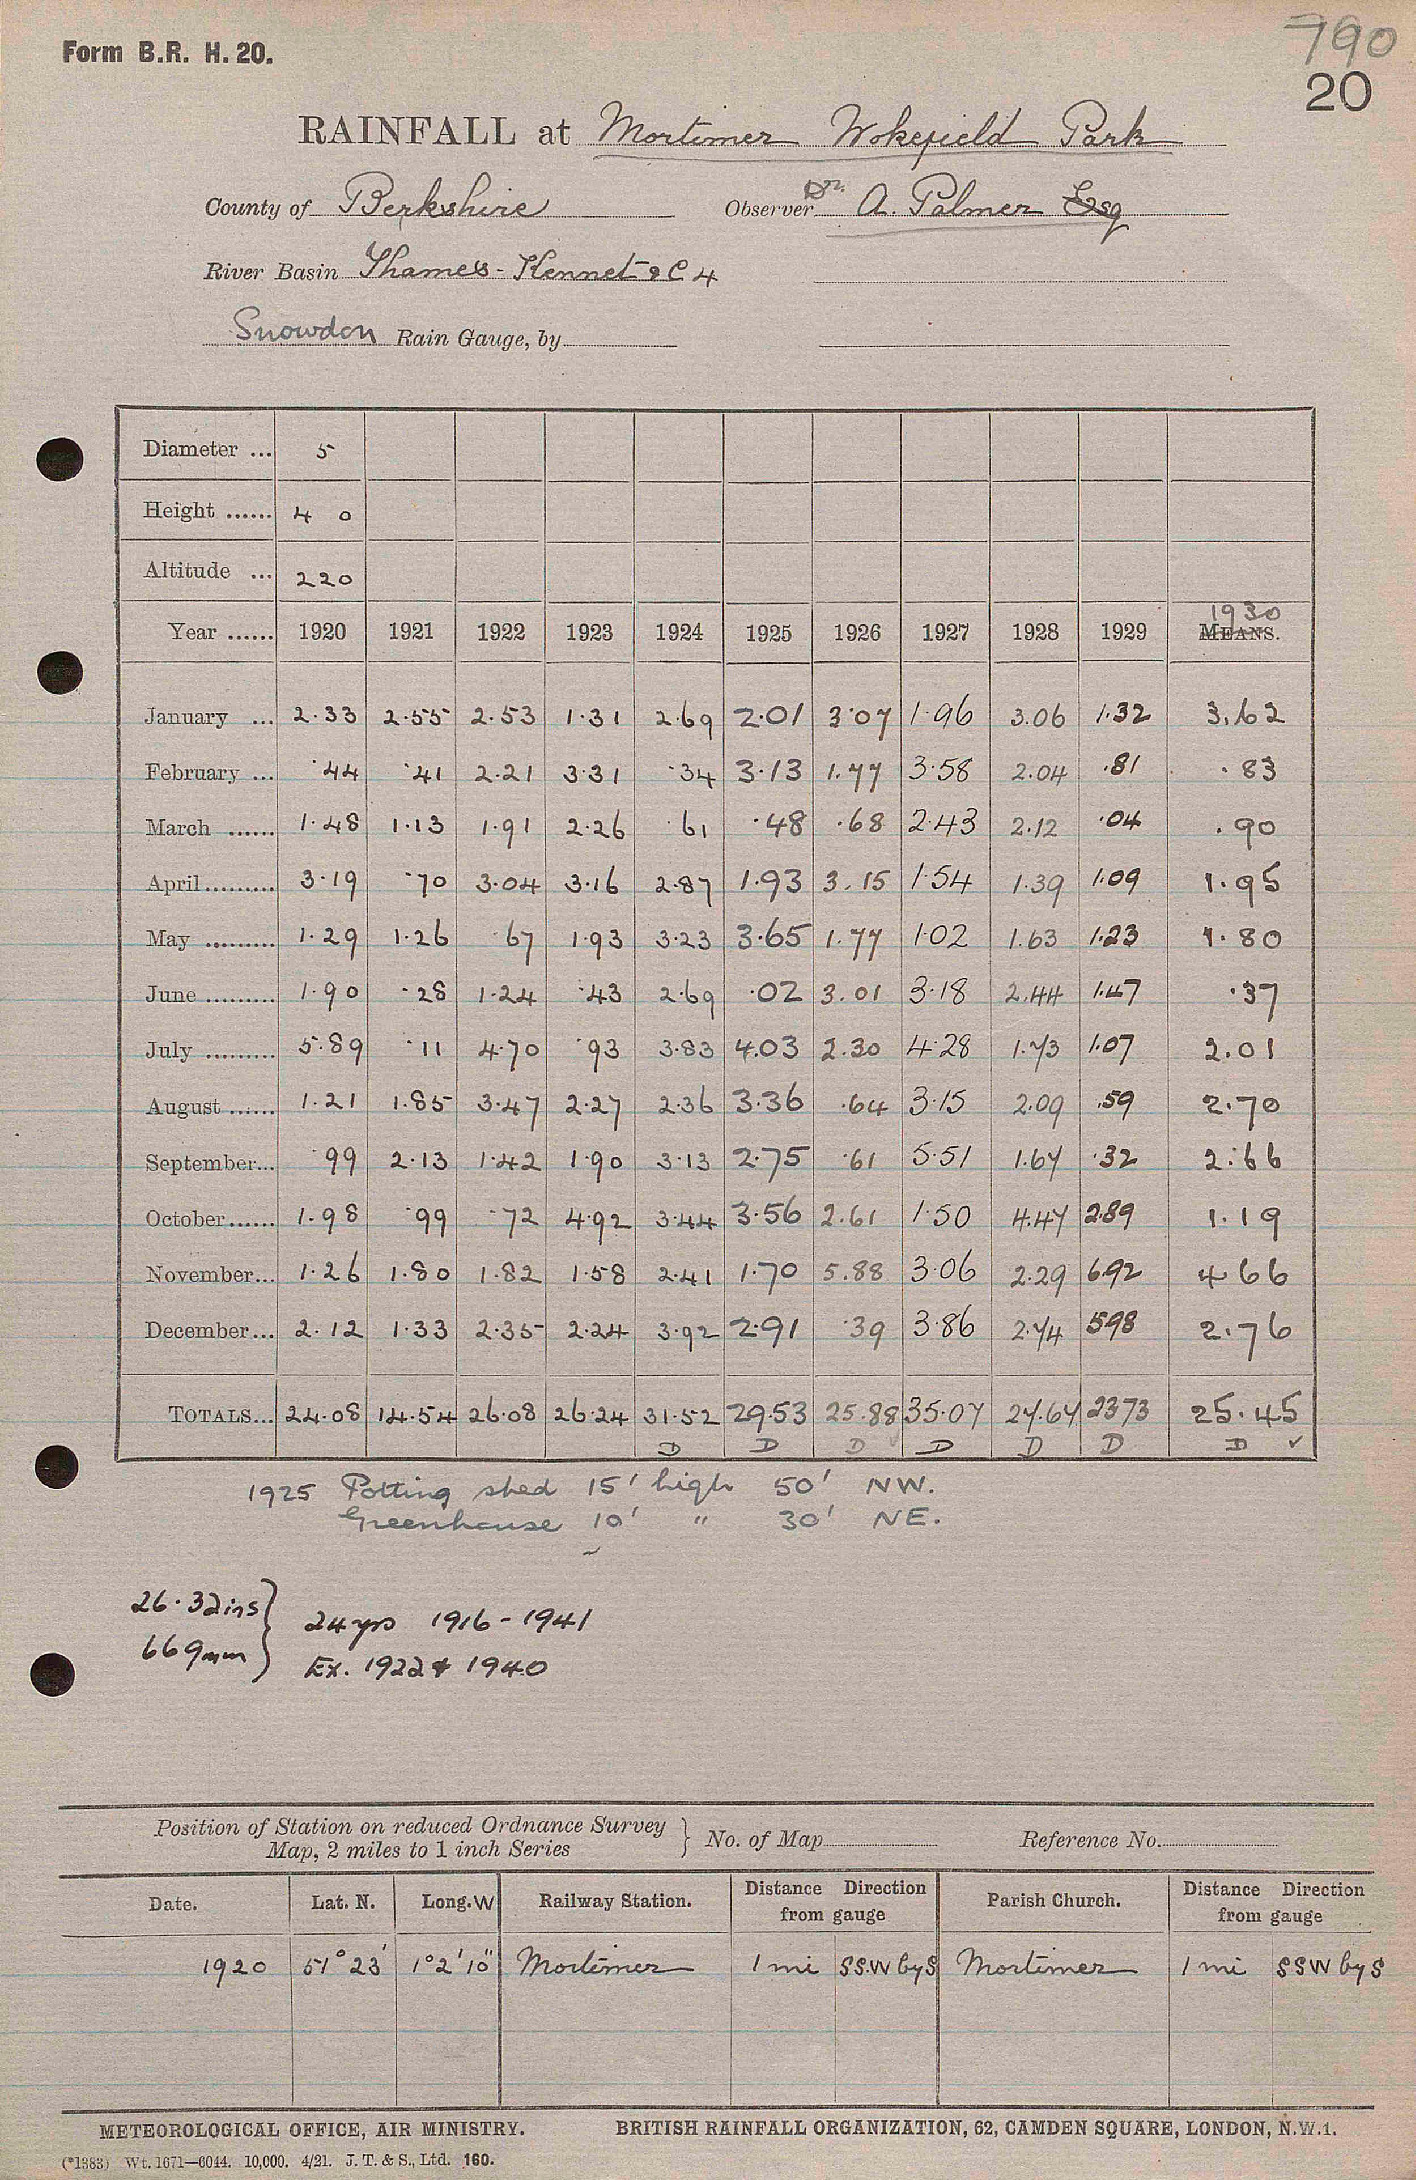 790
Form B.R. H. 20.
20
RAINFALL at Mortimer Wokefield Park
County of Berkshire Observer Dr. A. Palmer Esq
River Basin Thames - Kennet & C 4
Snowdon Rain Gauge, by
Diameter ... 5
Height ...... 4 0
Altitude ... 220
1930
Year ...... 1920 1921 1922 1923 1924 1925 1926 1927 1928 1929 MEANS.
January ... 2.33 2.55 2.53 1.31 2.69 2.01 3.07 1.96 3.06 1.32 3.62
February ... .44 .41 2.21 3.31 .34 3.13 1.77 3.58 2.04 .81 .83
March ...... 1.48 1.13 1.91 2.26 .61 .48 .68 2.43 2.12 .04 .90
April ......... 3.19 .70 3.04 3.16 2.87 1.93 3.15 1.54 1.39 1.09 1.95
May ......... 1.29 1.26 .67 1.93 3.23 3.65 1.77 1.02 1.63 1.23 1.80
June ......... 1.90 .28 1.24 .43 2.69 .02 3.01 3.18 2.44 1.47 .37
July ......... 5.89 .11 4.70 .93 3.83 4.03 2.30 4.28 1.73 1.07 2.01
August ...... 1.21 1.85 3.47 2.27 2.36 3.36 .64 3.15 2.09 .59 2.70
September... .99 2.13 1.42 1.90 3.13 2.75 .61 5.51 1.67 .32 2.66
October...... 1.98 .99 .72 4.92 3.44 3.56 2.61 1.50 4.47 2.89 1.19
November... 1.26 1.80 1.82 1.58 2.41 1.70 5.88 3.06 2.29 6.92 4.66
December... 2.12 1.33 2.35 2.24 3.92 2.91 .39 3.86 2.74 5.98 2.76
TOTALS... 24.08 14.54 26.08 26.24 31.52 29.53 25.88 35.07 27.67 23.73 25.45
D D D D D D D ✓
1925 Potting shed 15' high 50' NW.
Greenhouse 10' " 30' NE.
26.32ins } 24 yrs 1916 - 1941
669mm } Ex. 1922 & 1940
Position of Station on reduced Ordnance Survey
Map, 2 miles to 1 inch Series } No. of Map Reference No.
Date. Lat. N. Long. W Railway Station. Distance Direction from gauge Parish Church. Distance Direction from gauge
1920 51° 23' 1° 2' 10" Mortimer 1 mi SSW by S Mortimer 1 mi SSW by S
METEOROLOGICAL OFFICE, AIR MINISTRY. BRITISH RAINFALL ORGANIZATION, 62, CAMDEN SQUARE, LONDON, N.W.1.
(*1383) Wt. 1671—6044. 10,000. 4/21. J. T. & S., Ltd. 160.